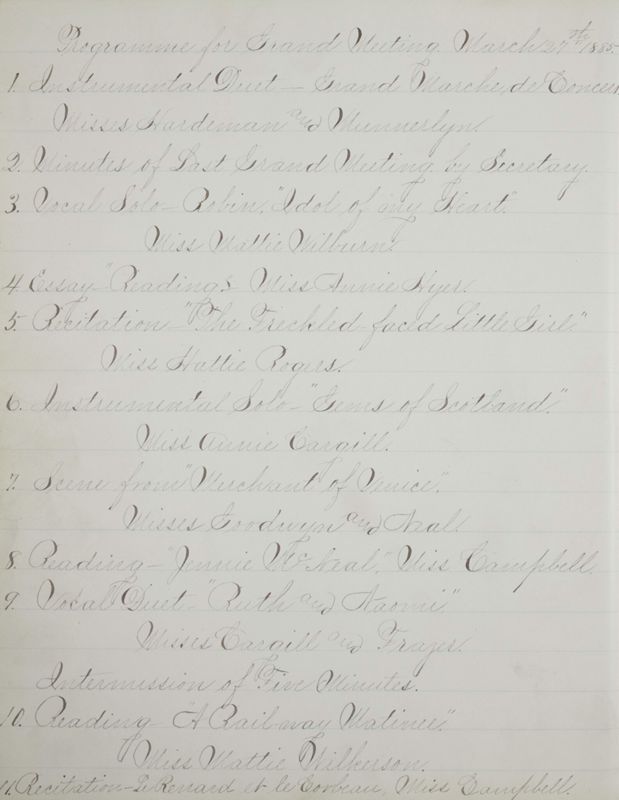 Programme for Grand Meeting March 27th/1885.
1. Instrumental Duet – Grand Marche de Concert
Misses Hardeman and Munnerlyn.
2. Minutes of Last Grand Meeting by Secretary.
3. Vocal Solo – Robin, "Idol of my Heart".
Miss Mattie Wilburn.
4. Essay "Reading". Miss Annie Hyer.
5. Recitation – "The Freckled-faced Little Girl"
Miss Hattie Rogers.
6. Instrumental Solo – "Gems of Scotland".
Miss Annie Cargill.
7. Scene from "Merchant of Venice".
Misses Goodwyn and Neal.
8. Reading – "Jennie McNeal", Miss Campbell.
9. Vocal Duet – "Ruth and Naomi"
Misses Cargill and Frazer.
Intermission of Five Minutes.
10. Reading – "A Railway Matinee".
Miss Mattie Wilkerson.
11. Recitation – Le Renard et le Corbeau, Miss Campbell.